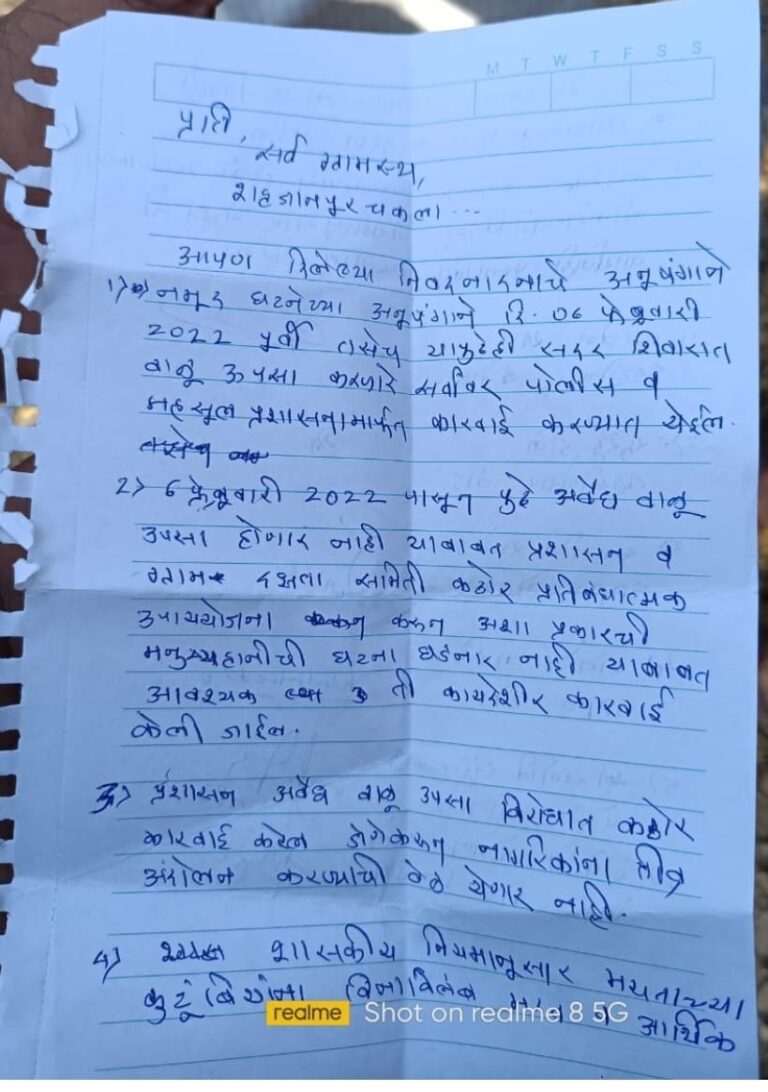 M T W T F S S
प्रति,
सर्व ग्रामस्थ,
शहजानपूर चकला ...
आपण दिलेल्या अनुषंगाने
1) नमूद घटनेच्या अनुषंगाने दि. 06 फेब्रुवारी
2022 पूर्वी तसेच यापुढेही सदर शिवारात
वाळू उपसा करणारे सर्वांवर पोलीस व
महसूल प्रशासनामार्फत कारवाई करण्यात येईल.
2) 6 फेब्रुवारी 2022 पासून पुढे अवैध वाळू
उपसा होणार नाही याबाबत प्रशासन व
ग्राम दक्षता समिती कठोर प्रतिबंधात्मक
उपाययोजना करुन अशा प्रकारची
मनुष्यहानीची घटना घडनार नाही याबाबत
आवश्यक ती कायदेशीर कारवाई
केली जाईल.
3) प्रशासन अवैध वाळू उपसा विरोधात कठोर
कारवाई करेल जेणेकरुन नागरिकांना तीव्र
आंदोलन करण्याची वेळ येणार नाही.
4) शासकीय नियमानुसार मयताच्या
कुटूंबियांना विनाविलंब आर्थिक
realme Shot on realme 8 5G